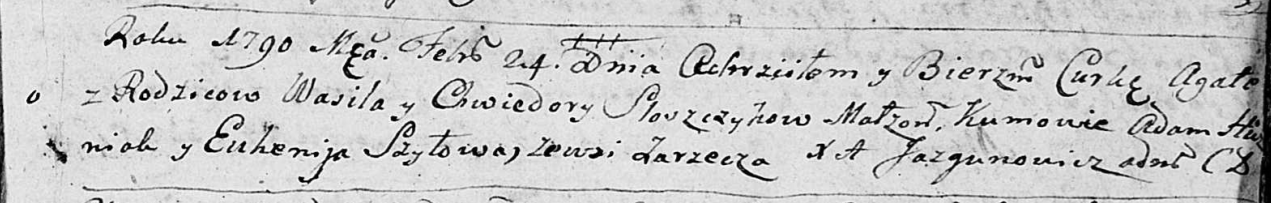 Roku 1790 Mca. Febr 24. Dnia Ochrzciłem y Bierzm Curkę Agatę
z Rodzicow Wasila y Chwiedory Słoszczykow Małżon, Kumowie Adam
niak y Euhenija Szyłowa, zewsi Zarzecza X A Jazgunowicz adm C D